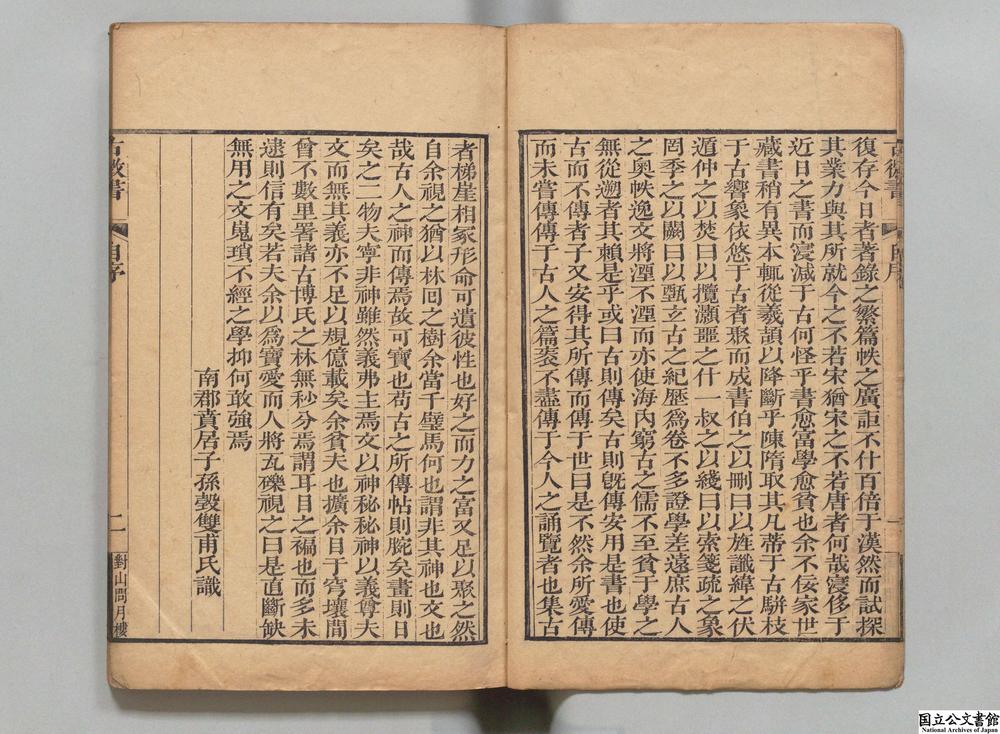 復存今日者著錄之繁篇帙之廣詎不什百倍于漢然而試探
其業力與其所就今之不若宋猶宋之不若唐者何哉寖侈于
近日之書而寖減于古何怪乎書愈富學愈貧也余不佞家世
藏書稍有異本輒從羲頡以降斷乎陳隋取其凡蒂于古駢枝
于古響象依悠于古者聚而成書伯之以刪曰以旌讖緯之伏
遁仲之以焚曰以攬灝噩之什一叔之以綫曰以索箋疏之象
罔季之以闕曰以甄玄古之紀歷爲卷不多證學差遠庶古人
之奥帙逸文將湮不湮而亦使海內窮古之儒不至貧于學之
無從遡者其賴是乎或曰古則傳矣古則旣傳安用是書也使
古而不傳者子又安得其所傳而傳于世曰是不然余所愛傳
而未嘗傳傳于古人之篇袠不盡傳于今人之誦覽者也集古
古微書
自序
一
者梯崖相冢形命可遺彼性也好之而力之富又足以聚之然
自余視之猶以林回之樹余當千璧馬何也謂非其神也文也
哉古人之神而傳焉故可寶也苟古之所傳帖則腕矣畫則目
矣之二物夫寧非神雖然義弗主焉文以神秘秘神以義尊夫
文而無其義亦不足以規億載矣余貧夫也擴余目于穹壤間
曾不數里署諸古博氏之林無秒分焉謂耳目之褊也而多未
逮則信有矣若夫余以爲寶愛而人將瓦礫視之曰是直斷缺
無用之文嵬瑣不經之學抑何敢強焉
南郡賁居子孫瑴雙甫氏識
古微書
自序
二
對山問月樓
国立公文書館
National Archives of Japan